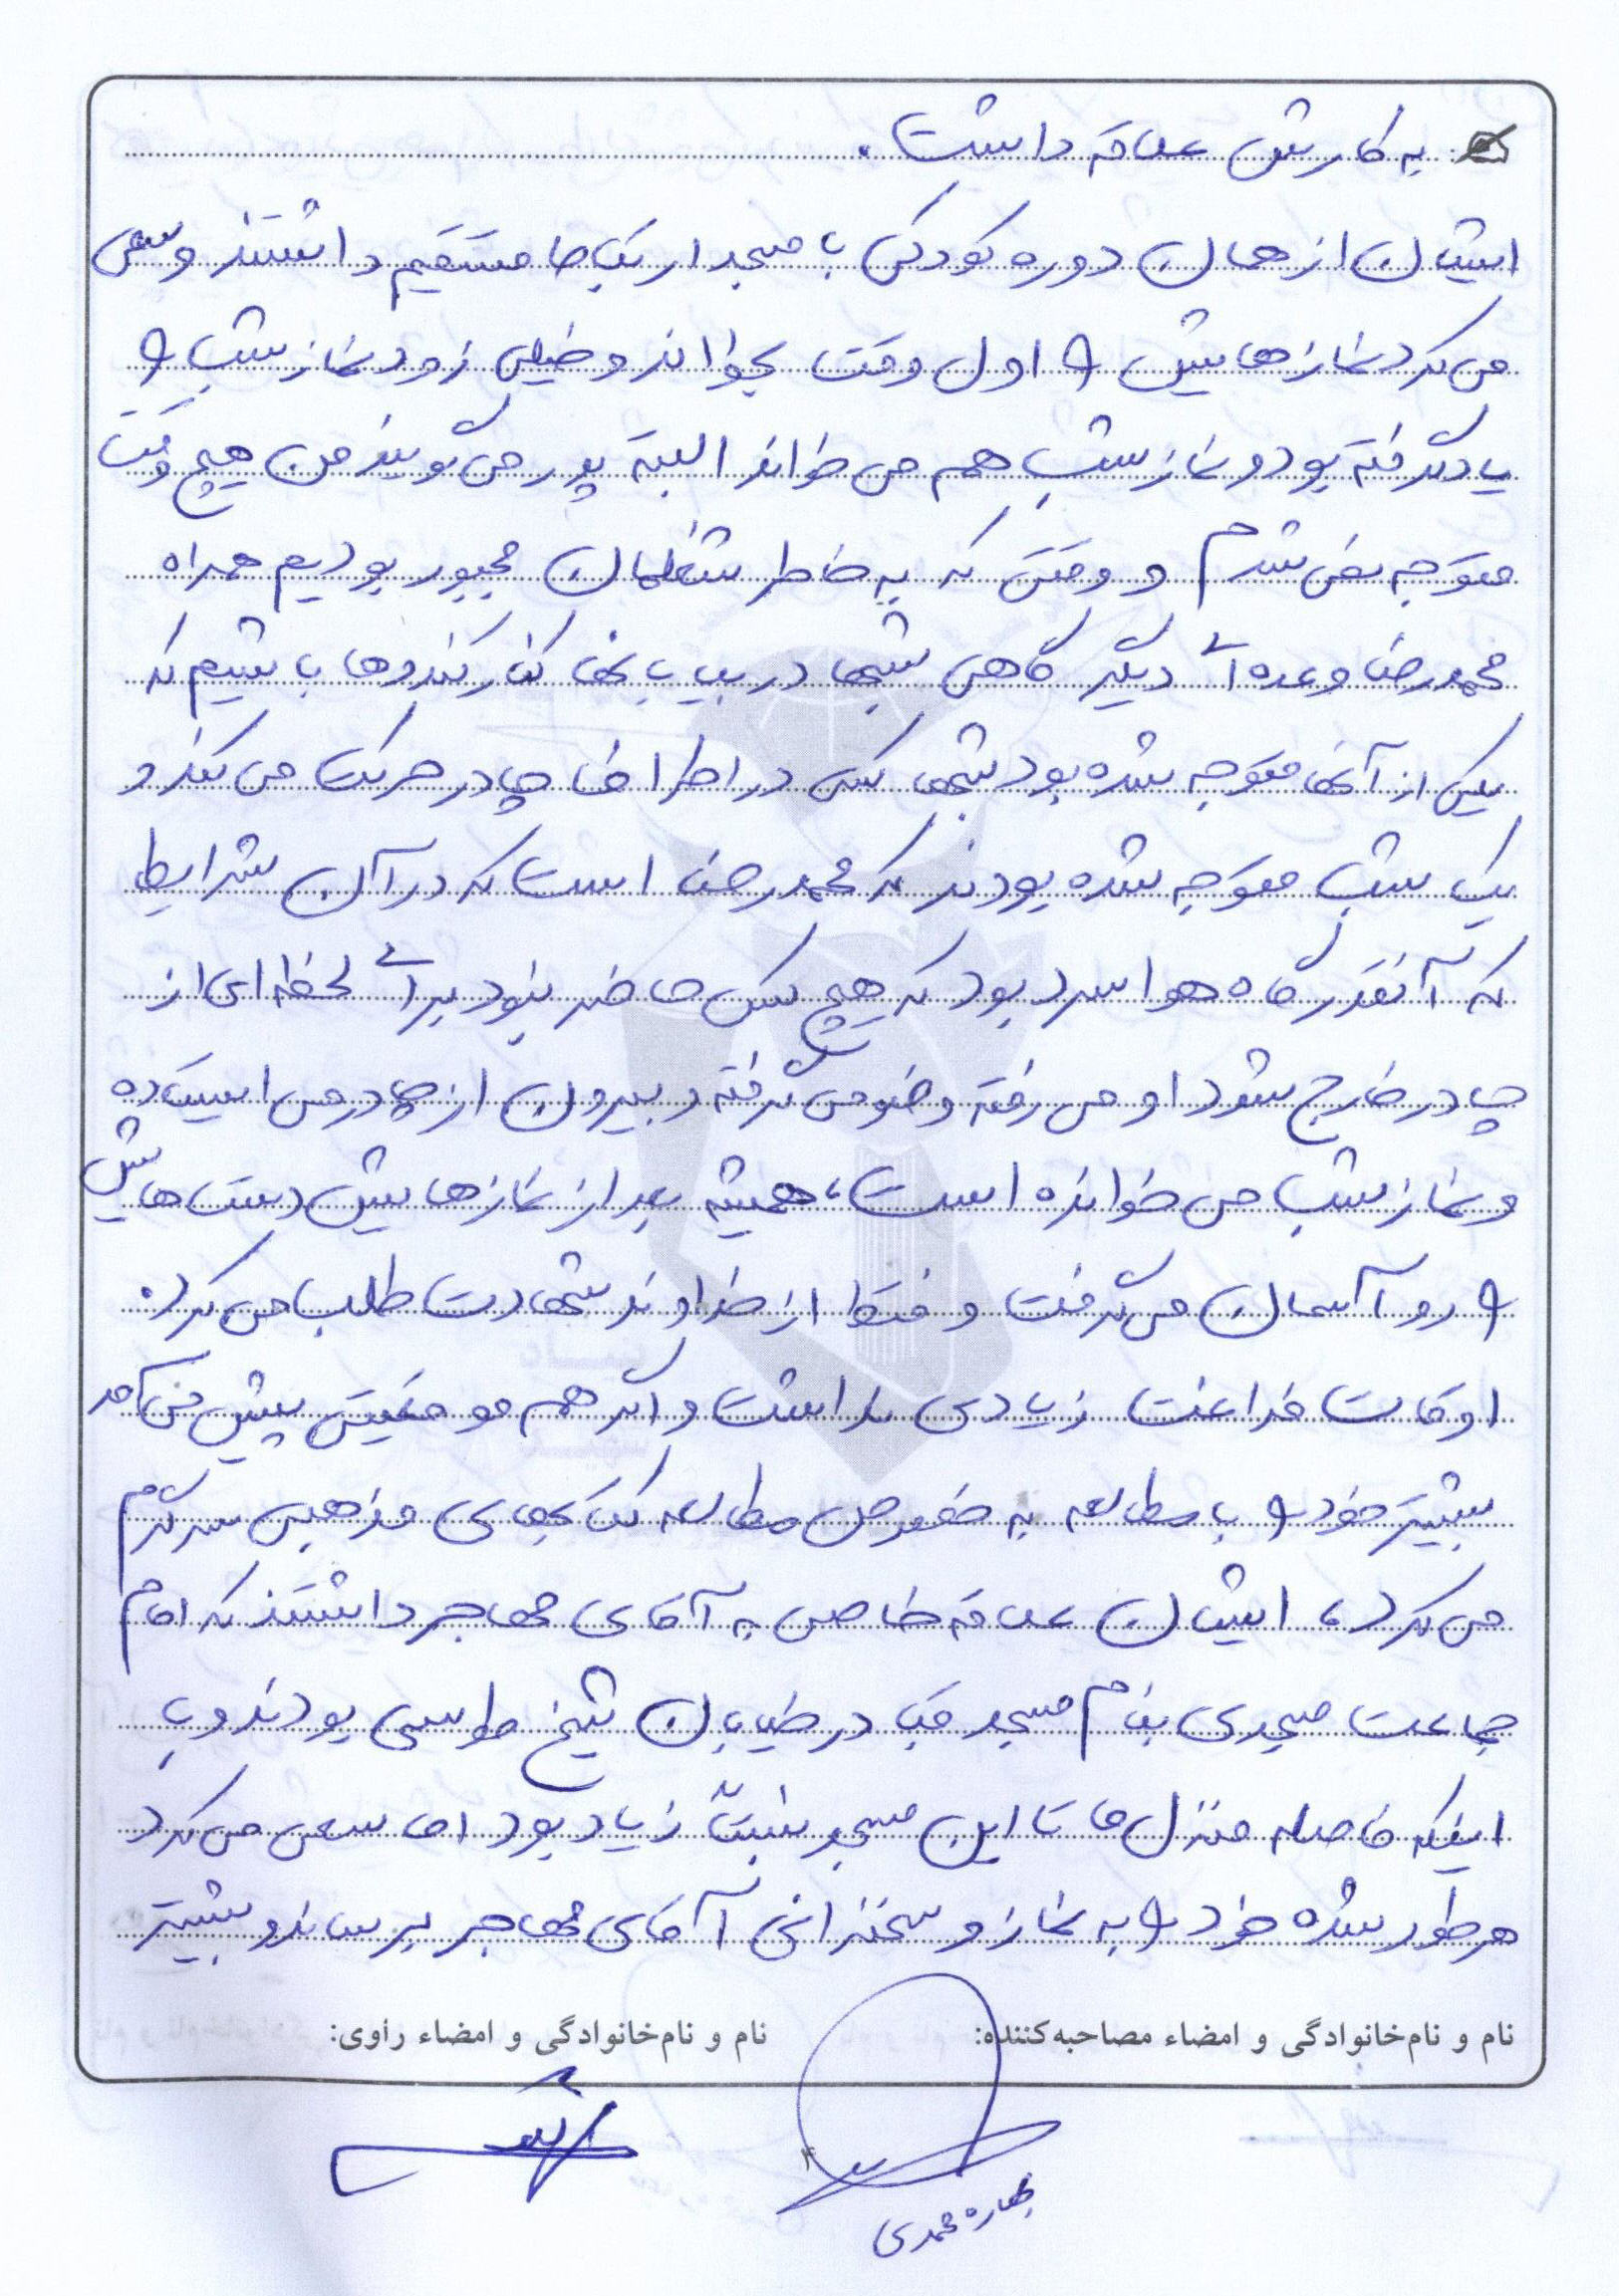 به کارش علاقه داشت.
ایشان از همان دوره کودکی با مسجد ارتباط مستقیم داشتند و سعی
می کرد نمازهایش را اول وقت بخواند و خیلی زود نماز شب را
یاد گرفته بود و نماز شب هم می خواند البته پدر می گویند من هیچ وقت
متوجه نمی شدم و وقتی که به خاطر شغلمان مجبور بودیم همراه
محمدرضا و عده ای دیگر گاهی شبها در بیابانها کنار کندوها باشیم که
یکی از آنها متوجه شده بود شبها کسی در اطراف چادر حرکت می کند و
یک شب متوجه شده بودند که محمدرضا است که در آن شرایط
که آنقدر گاه هوا سرد بود که هیچ کس حاضر نبود برای لحظه ای از
چادر خارج شود او می رفته وضو می گرفته و بیرون از چادر می ایستاده
و نماز شب می خوانده است، همیشه بعد از نمازهایش دست هایش
را رو آسمان می گرفت و فقط از خداوند شهادت طلب می کرد.
اوقات فراغت زیادی نداشت و اگر هم موقعیتی پیش می آمد
بیشتر خود را با مطالعه به خصوص مطالعه کتابهای مذهبی سرگرم
می کرد، ایشان علاقه خاصی به آقای مهاجر داشتند که امام
جماعت مسجدی بنام مسجد قبا در خیابان شیخ طوسی بودند و با
اینکه فاصله منزل ما تا این مسجد نسبتاً زیاد بود اما سعی می کرد
هر طور شده خود را به نماز و سخنرانی آقای مهاجر برساند و بیشتر
نام و نام‌خانوادگی و امضاء مصاحبه‌کننده: نام و نام‌خانوادگی و امضاء راوی:
۴
بهاره محمدی